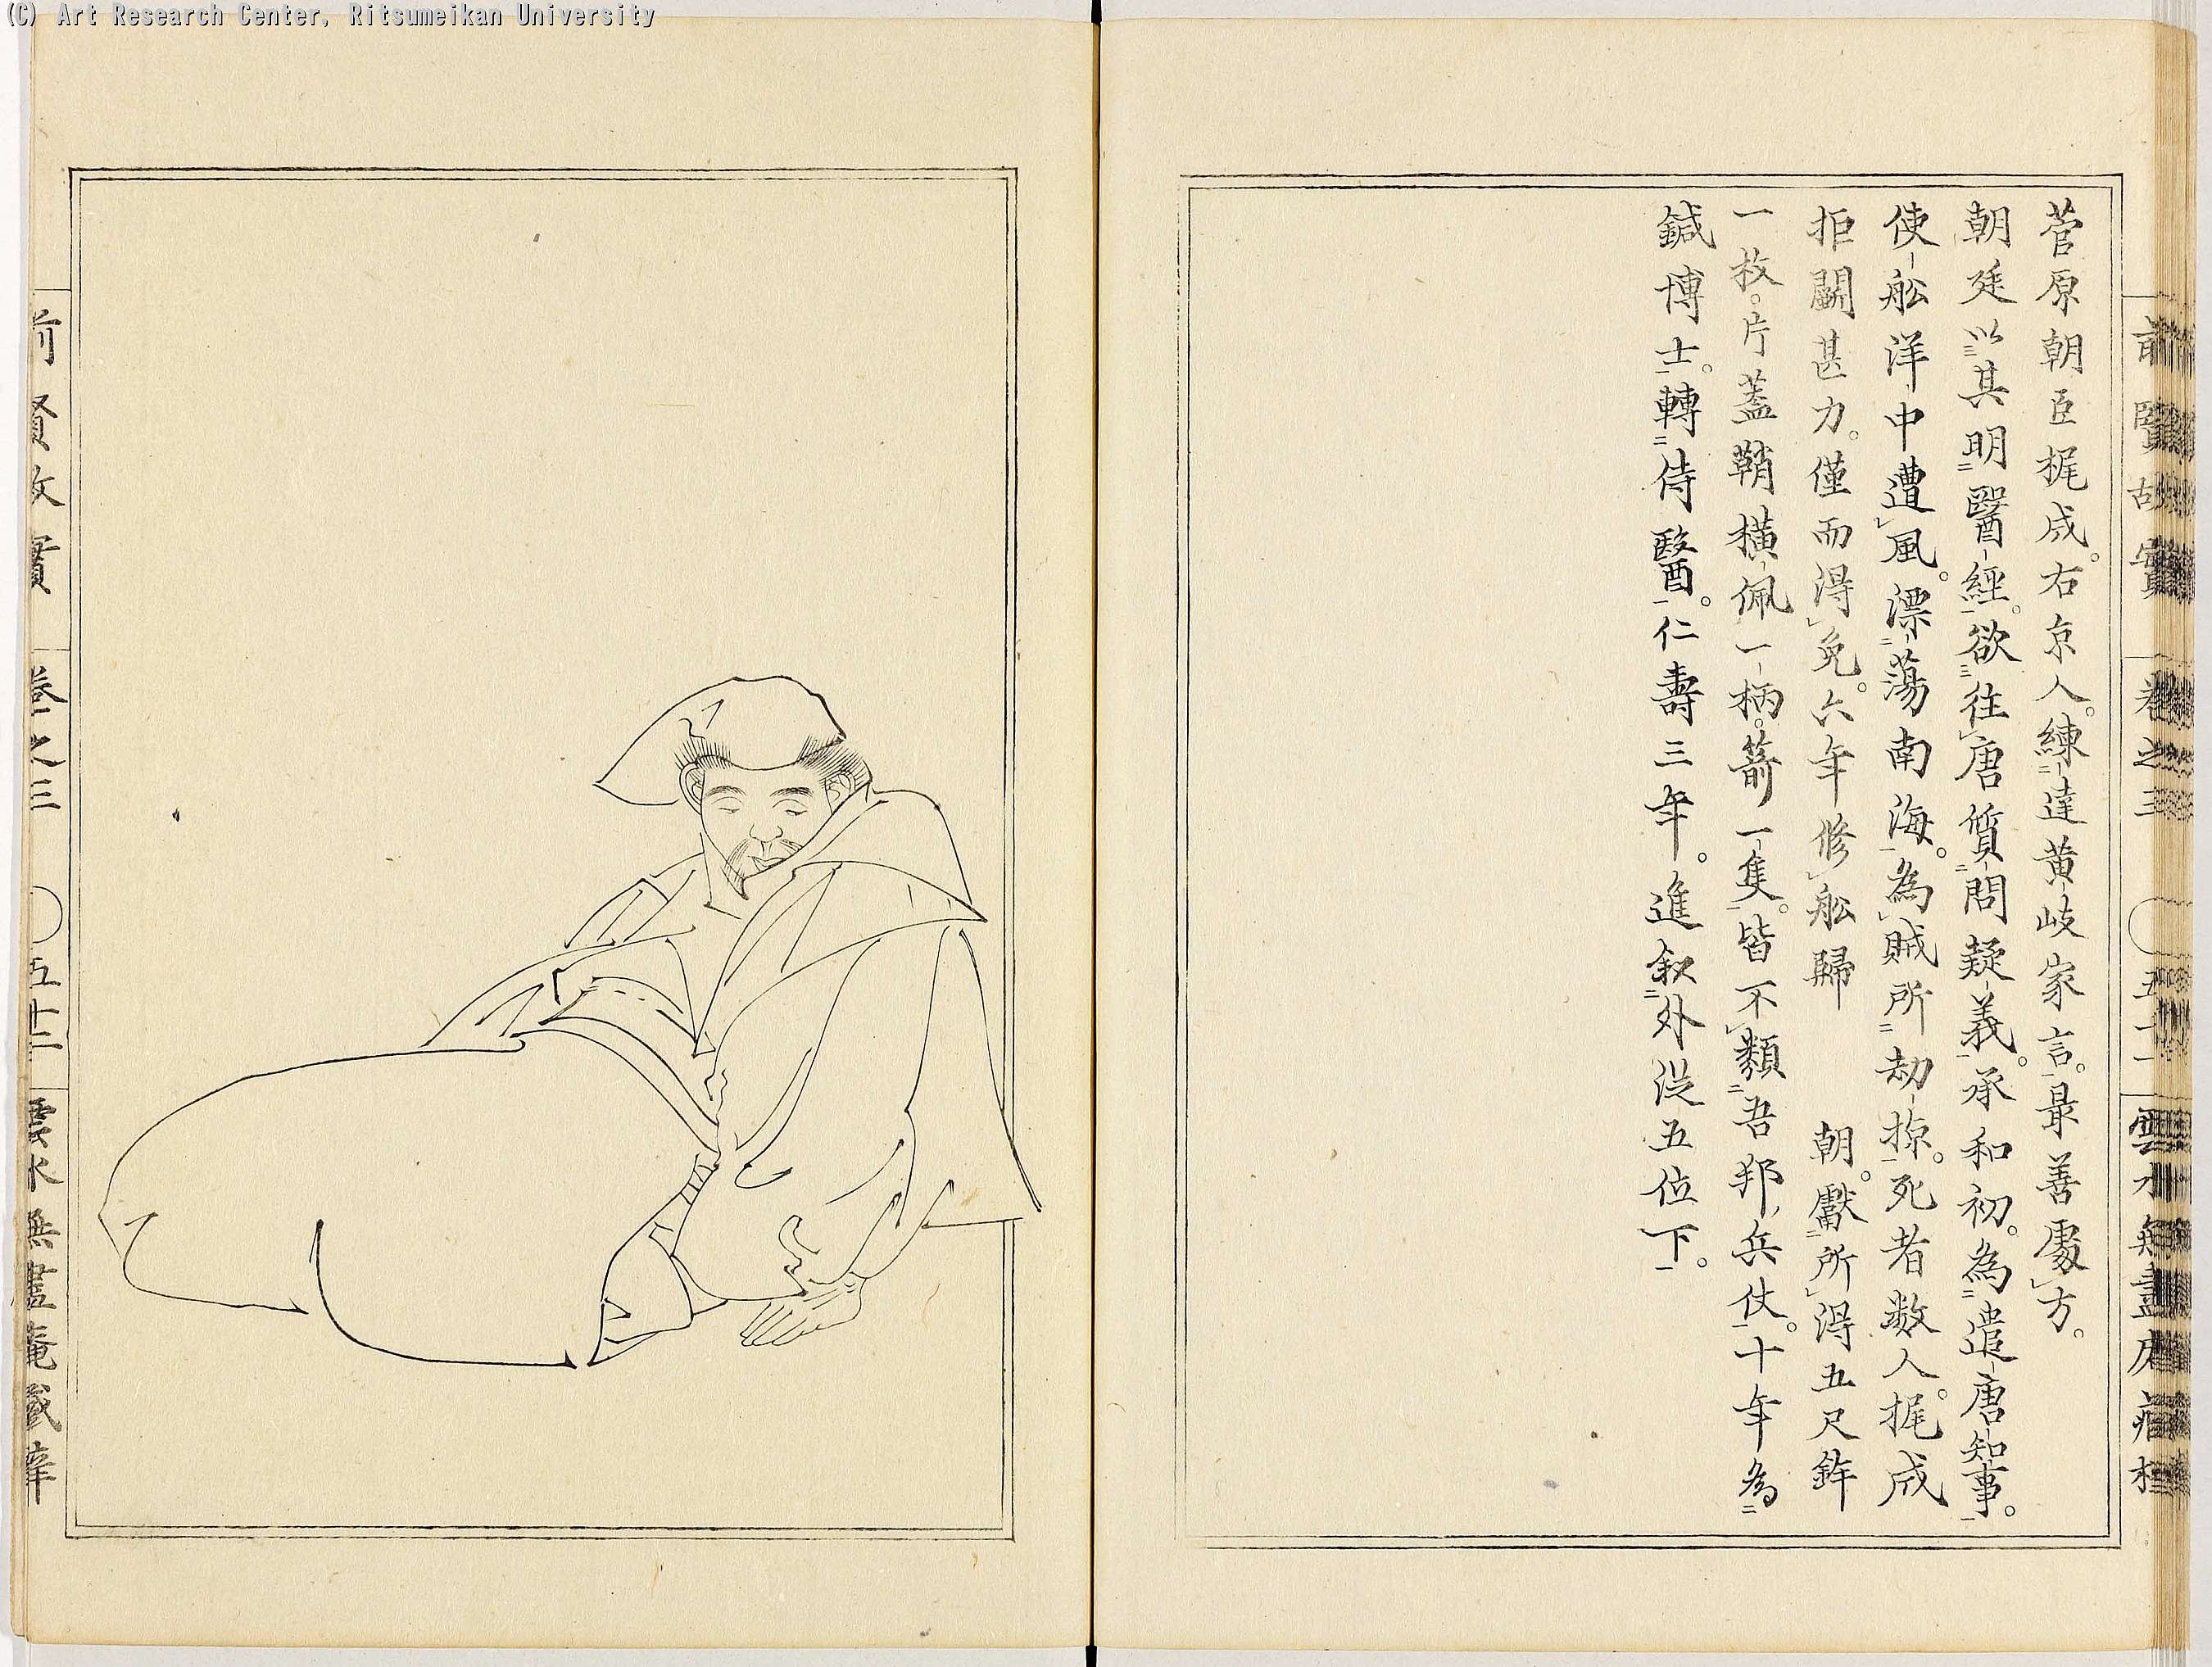 (C) Art Research Center, Ritsumeikan University
菅原朝臣梶成。右京人。練達黃岐家言。最善處方。
朝廷以其明醫經。欲往唐質問疑義。承和初。為遣唐知事。
使舩洋中遭風。漂蕩南海。為賊所劫掠。死者数人。梶成
拒鬭甚力。僅而得免。六年修舩歸　朝。獻所得五尺鉾
一枚。片蓋鞘橫佩一柄。箭一隻。皆不類吾邦兵仗。十年為
鍼博士。轉侍醫。仁壽三年。進叙外從五位下。
前賢故實　卷之三　〇五十二　雲水無盡庵藏梓